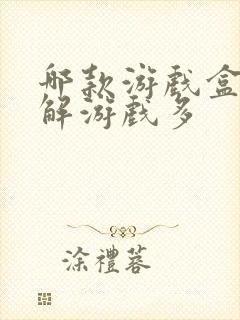 哪款游戏盒
解游戏多
涂禮蓉